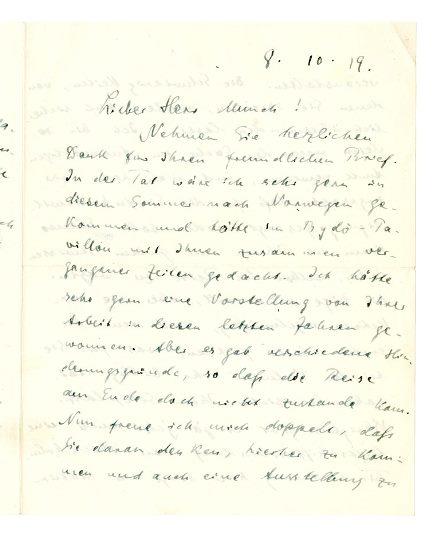 8. 10. 19.
Lieber Herr Munch!
Nehmen Sie herzlichen
Dank für Ihren freundlichen Brief.
In der Tat wäre ich sehr gern in
diesem Sommer nach Norwegen ge-
kommen und hätte im Bygdö-Pa-
villon mit Ihnen zusammen ver-
gangener Zeiten gedacht. Ich hätte
sehr gern eine Vorstellung von Ihrer
Arbeit in diesen letzten Jahren ge-
wonnen. Aber es gab verschiedene Hin-
derungsgründe, so daß die Reise
am Ende doch nicht zustande kam.
Nun freue ich mich doppelt, daß
Sie daran denken, hierher zu kom-
men und auch eine Ausstellung zu